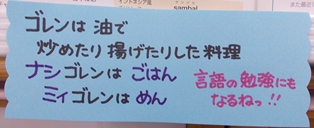 sambal
ゴレンは 油で
炒めたり 揚げたりした 料理
ナシゴレンは ごはん
ミィゴレンは めん
言語の勉強にも
なるねっ!!